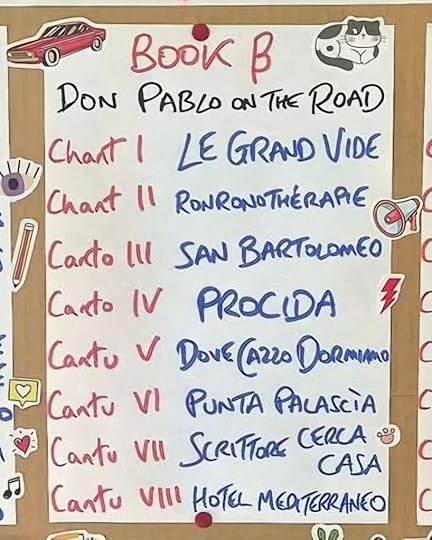 BOOK β
DON PABLO ON THE ROAD
Chant I LE GRAND VIDE
Chant II RONRONOTHÉRAPIE
Canto III SAN BARTOLOMEO
Canto IV PROCIDA
Cantu V DOVE CAZZO DORMIAMO
Cantu VI PUNTA PALASCÌA
Cantu VII SCRITTORE CERCA CASA
Cantu VIII HOTEL MEDITERRANEO